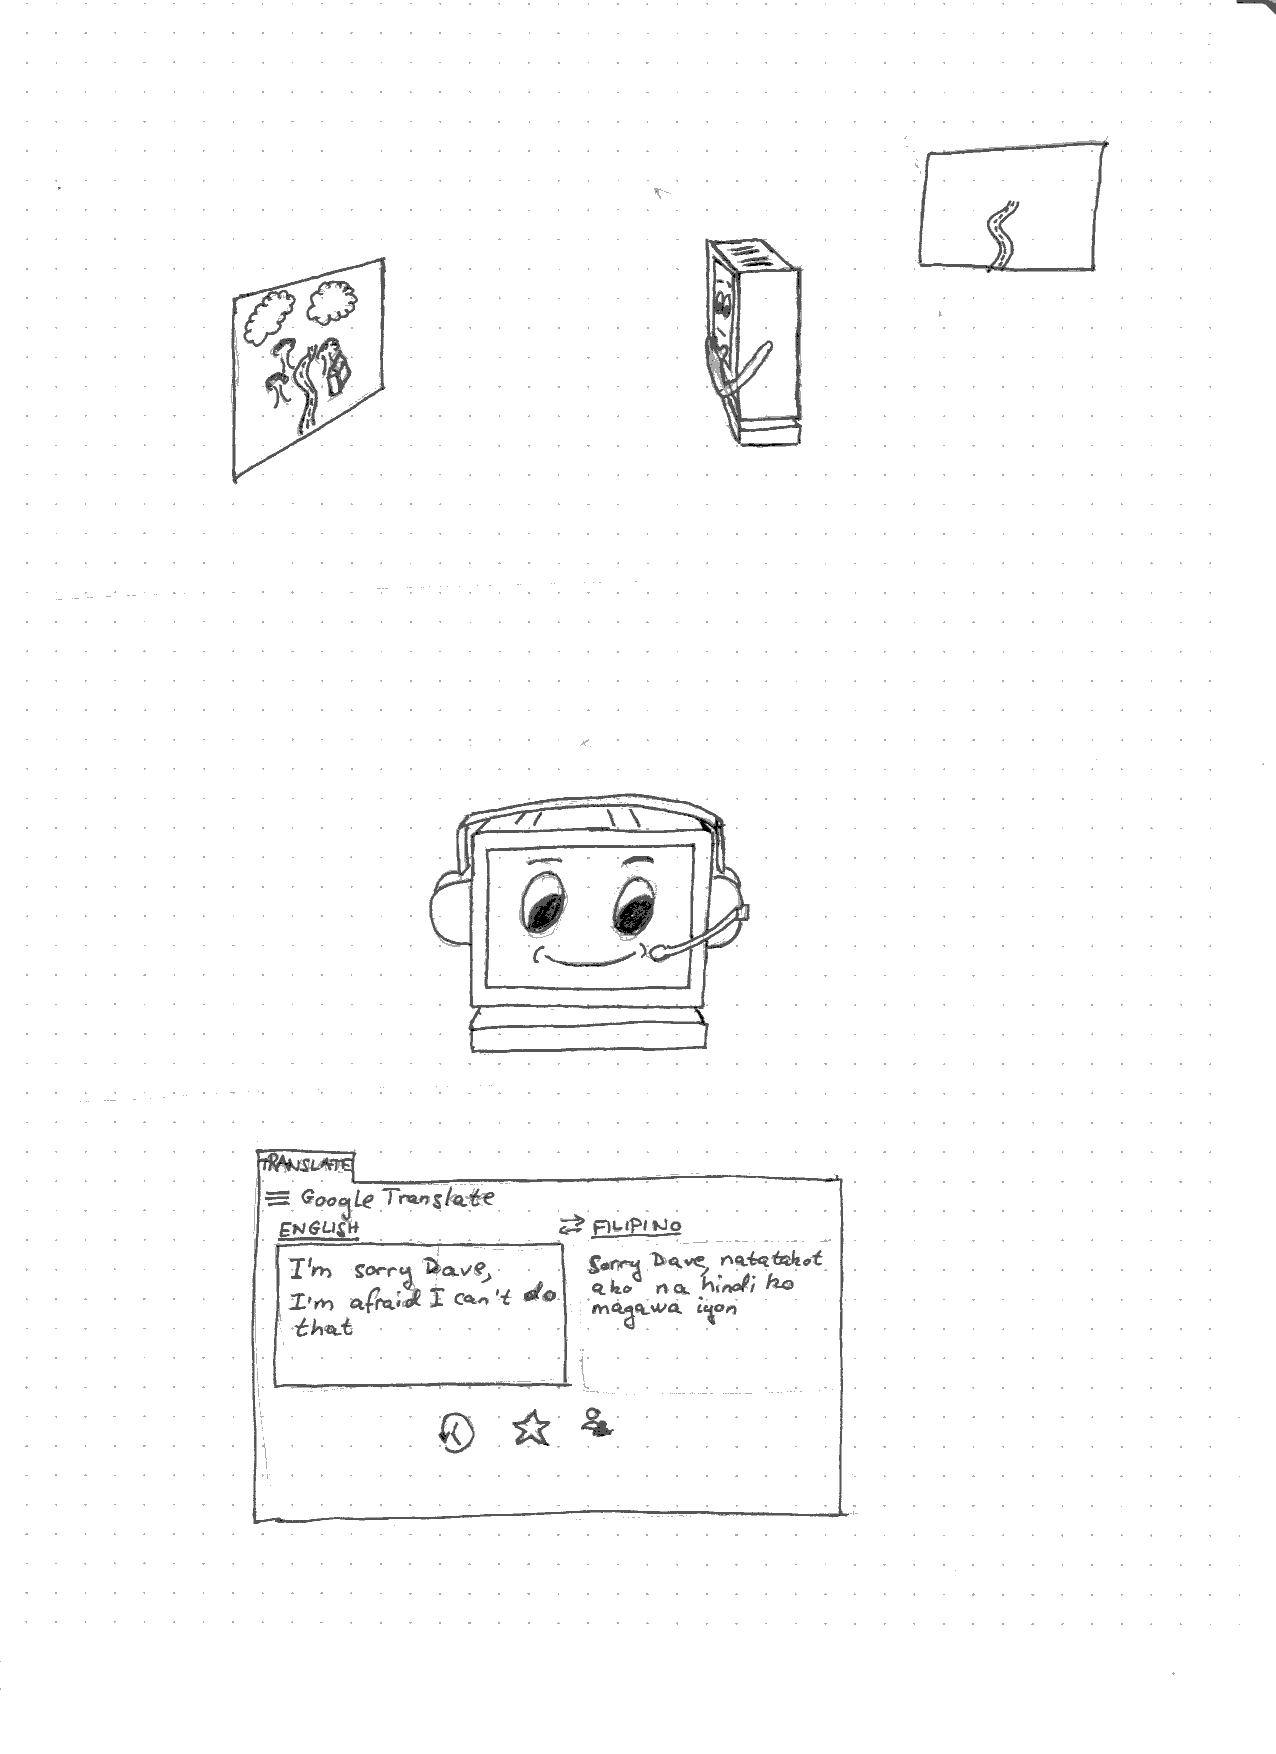 TRANSLATE
Google Translate
ENGLISH
FILIPINO
I'm sorry Dave,
I'm afraid I can't do
that
Sorry Dave, natatakot
ako na hindi ko
magawa iyon